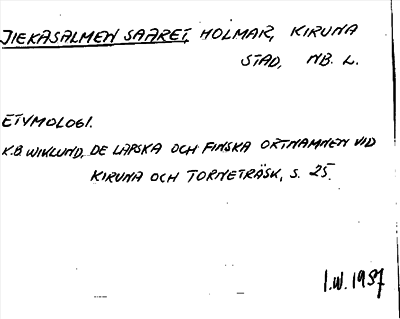 JIEKASALMEN SAARET, HOLMAR, KIRUNA
STAD, NB. L.
ETYMOLOGI.
K.B WIKLUND, DE LAPSKA OCH FINSKA ORTNAMNEN VID
KIRUNA OCH TORNETRÄSK, S. 25.
I.W. 1957